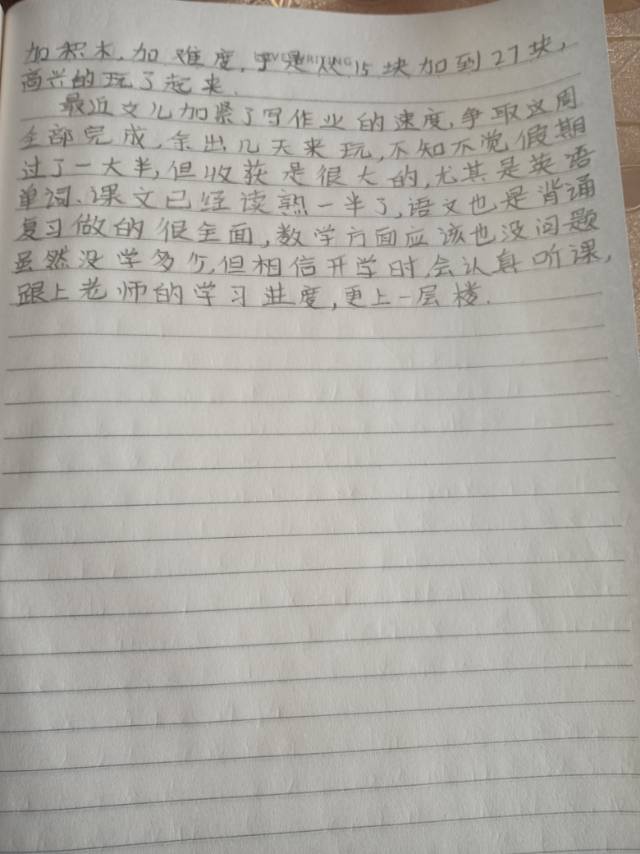 加积木,加难度,于是从15块加到27块,
高兴的玩了起来.
最近女儿加紧了写作业的速度,争取这周
全部完成,余出几天来玩,不知不觉假期
过了一大半,但收获是很大的,尤其是英语
单词、课文已经读熟一半了,语文也是背诵
复习做的很全面,数学方面应该也没问题
虽然没学多少,但相信开学时会认真听课,
跟上老师的学习进度,更上一层楼.